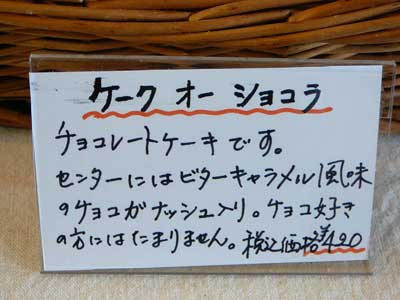 ケーク オー ショコラ
チョコレートケーキです。
センターにはビターキャラメル風味
のチョコガナッシュ入り。チョコ好き
の方にはたまりません。税込価格¥420